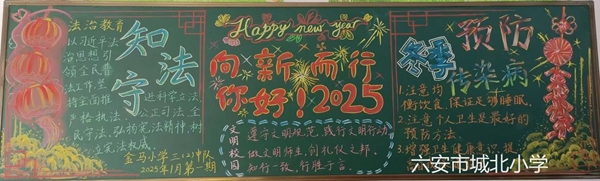 法治教育
以习近平法
治思想引
领全民普
法工作,坚
持全面推
进科学立法、
严格执法、公正司法、全
民守法,弘扬宪法精神,树
立宪法权威。
知法
守
金马小学三(2)中队
2025年1月第一期
Happy new year
向新而行
你好!2025
文明校园
遵守文明规范,践行文明行动
做文明师生,创礼仪之邦。
知行一致,行胜于言。
冬季
预防
传染病
1.注意均
衡饮食,保证足够睡眠。
2.注意个人卫生是最好的
预防方法。
3.增强卫生健康意识,提
六安市城北小学